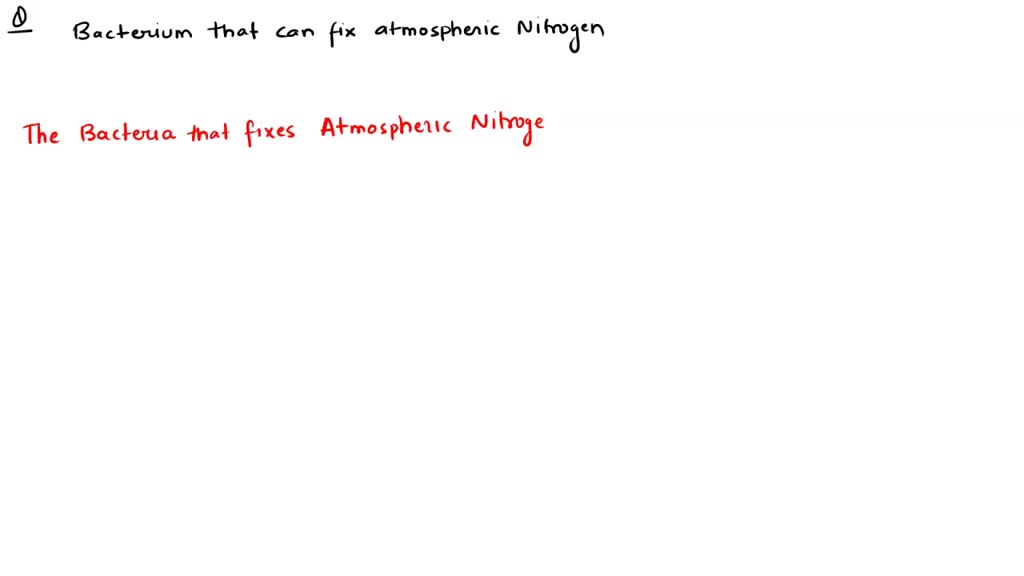 Q Bacterium that can fix atmospheric Nitrogen
The Bacteria that fixes Atmospheric Nitroge